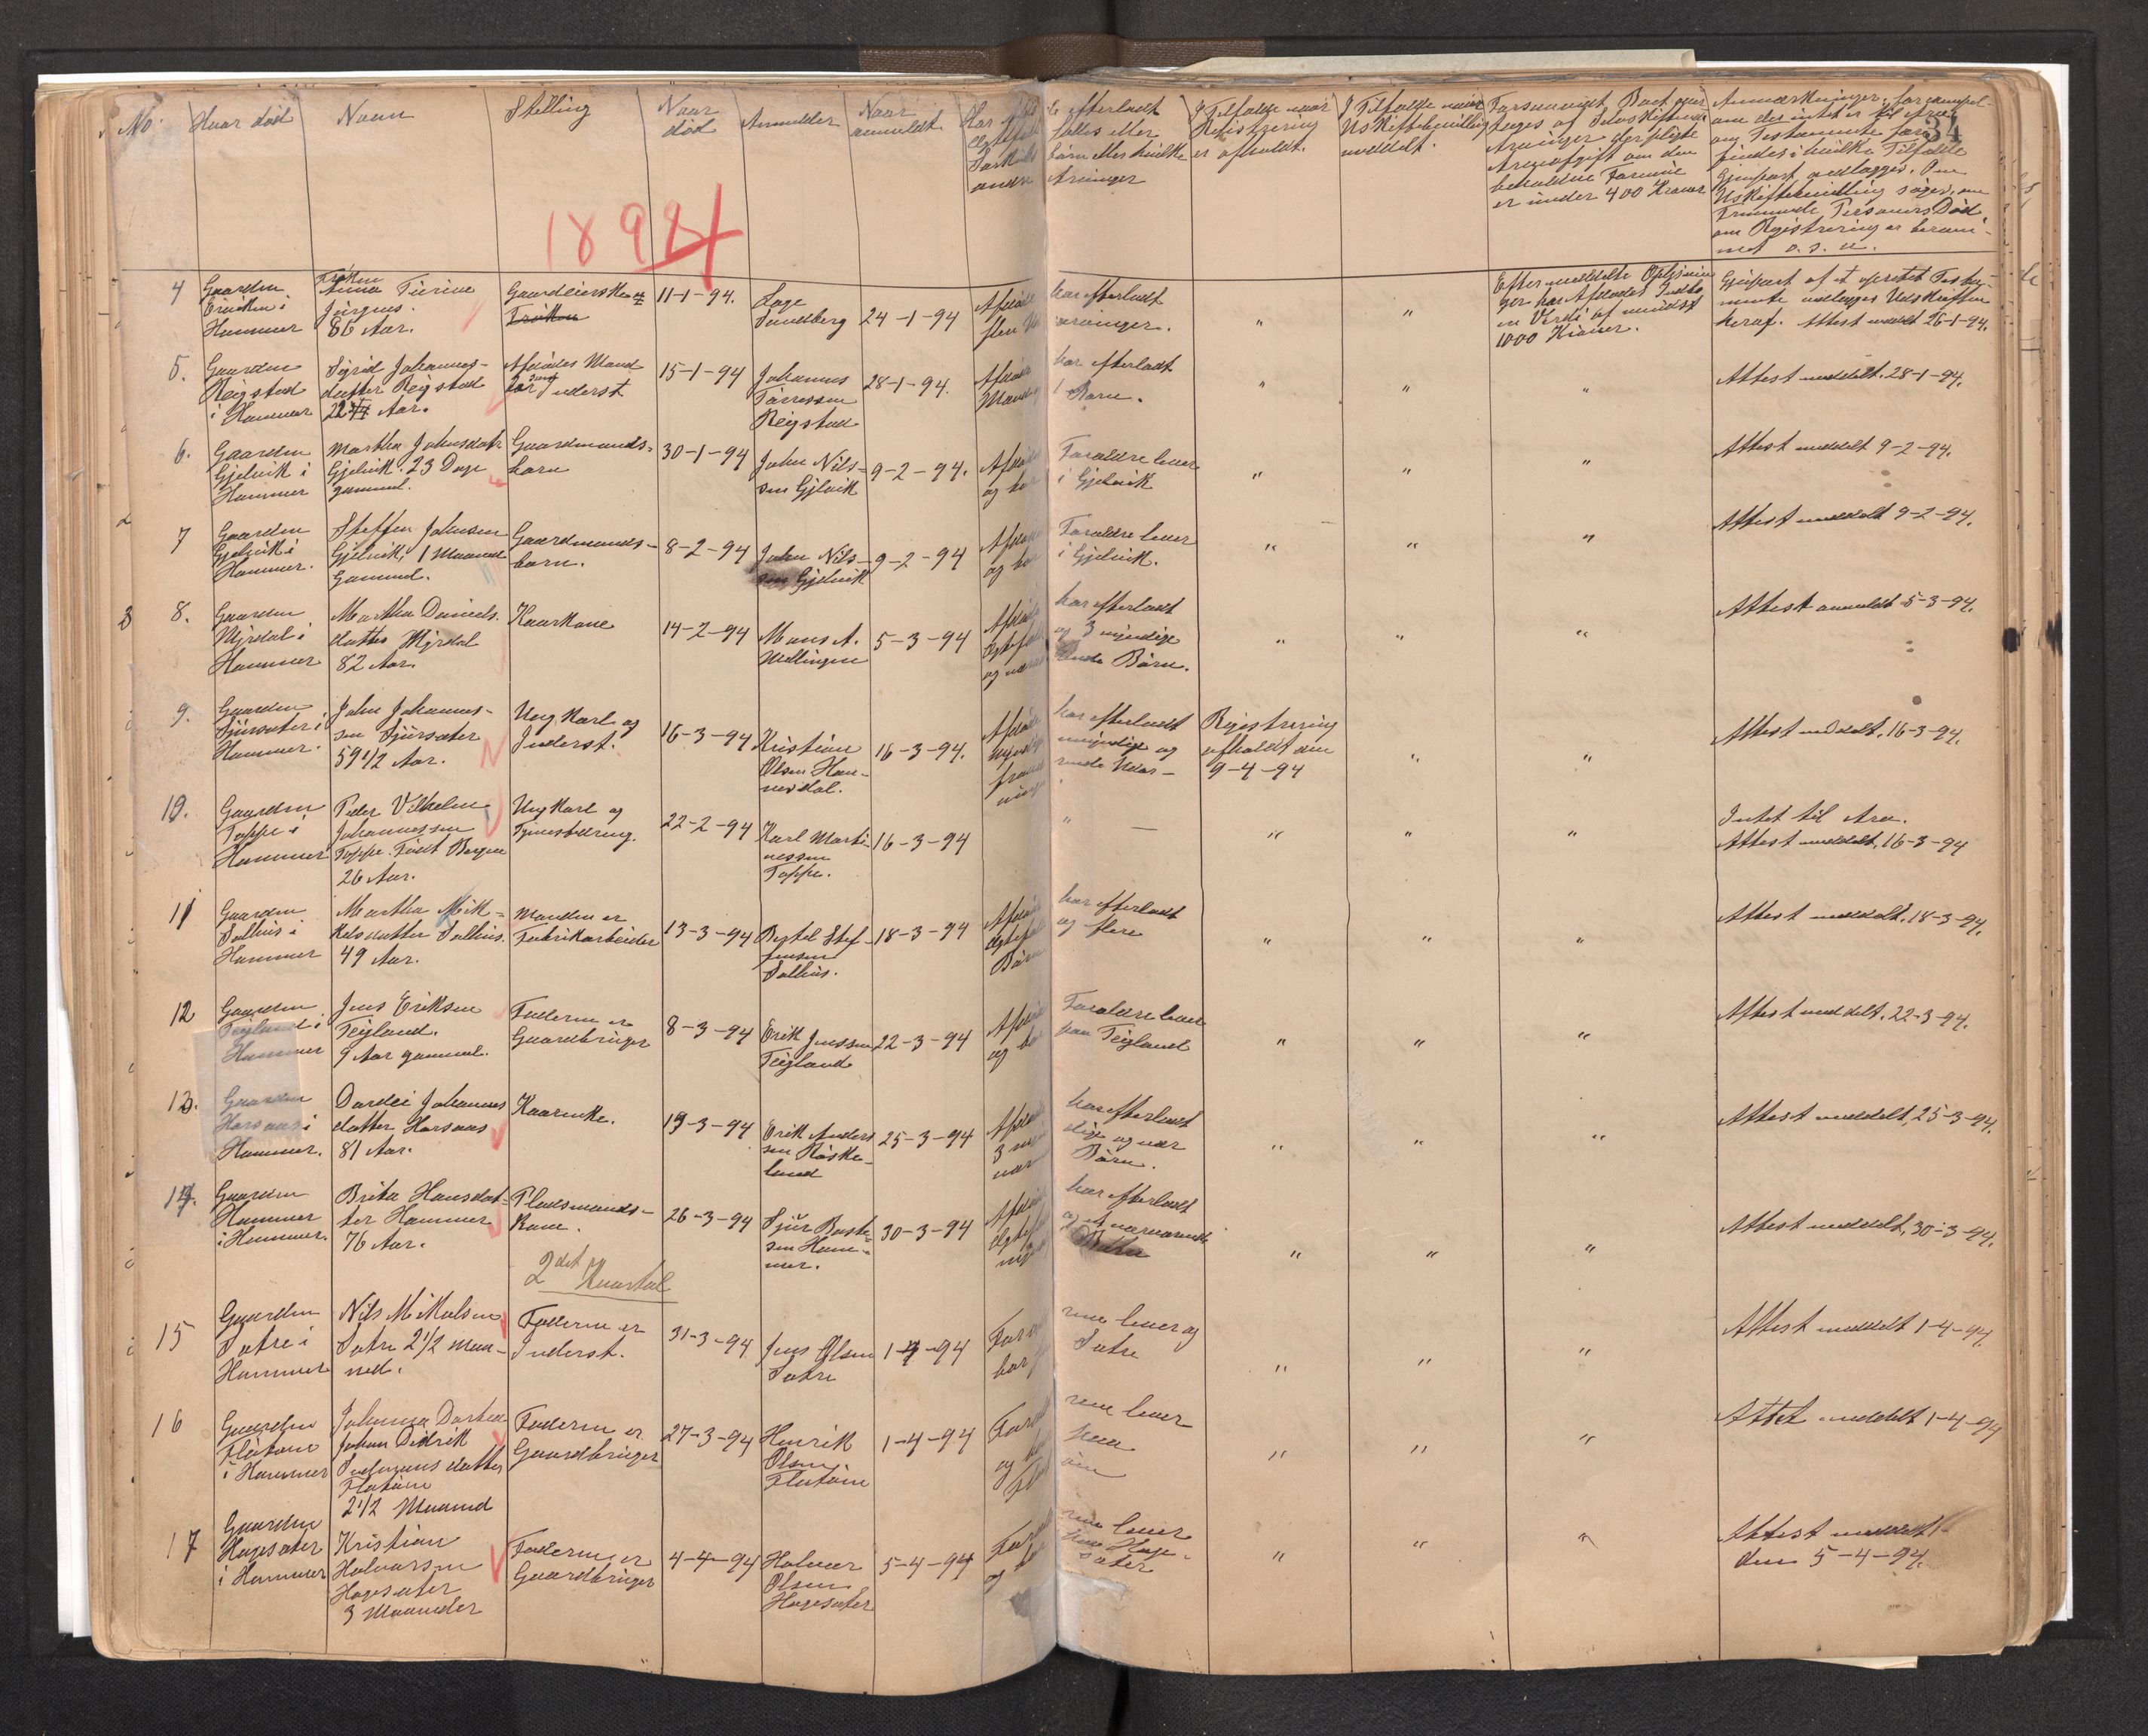 No.
Hvor död
Navn
Stilling
Naar
död
Anmelder
Naar
anmeldt
Har
efterladt
fælles eller
börn eller hvilke
Arvinger
I Tilfælde naar
Registrering
er afholdt.
I Tilfælde naar
Uskiftebevilling
meddelt.
Arveafgift om den
beholdne Formue
er under 400 Kroner
Anmærkninger, for exempel
om der intet er til Arv
om Testamente
findes i hvilke Tilfælde
Gjenpart vedlægges. Om
Uskiftebevilling söges, om
Fremmede Personers Död,
om Registrering er beram-
met o. s. v.
34
1894
4
Gaarden
Hammer
Fröken
Anna
86 Aar.
Gaardeierske
Fröken
11-1-94.
Lage
Sundberg
24-1-94
Afdöde
har efterladt
arvinger.
"
"
Efter meddelte Oplysnin
ger har Afdödes Indbo
en Værdi af mindst
1000 Kroner.
Gjenpart af et oprettet Testa-
mente vedlægges Udskriften
heraf. Attest meddt 26-1-94.
5.
Gaarden
Reigstad
i Hammer
Sigrid Johannes-
datter Reigstad
22 Aar.
Afdödes Mand
er Inderst
15-1-94
Johannes
Reigstad
28-1-94.
Afdöde
Mand
har efterladt
1 Barn.
"
"
"
Attest meddelt. 28-1-94.
6.
Gaarden
Gjelvik i
Hammer
Martha Johnsdatr
Gjelvik. 23 Dage
gammel.
Gaardmands-
barn
30-1-94
John Nils-
sen Gjelvik
9-2-94.
Afdöde
og
Forældre lever
i Gjelvik
"
"
"
Attest meddelt 9-2-94.
7
Gaarden
Gjelvik i
Hammer.
Steffen Johnsen
Gjelvik, 1 Maaned
Gammel.
Gaardmands-
barn.
8-2-94
John Nils-
sen Gjelvik
9-2-94
Afdöde
og
Forældre lever
i Gjelvik.
"
"
"
Attest meddelt 9-2-94.
8.
Gaarden
Myrdal i
Hammer
Martha Daniels
datter Myrdal
82 Aar.
Kaarkone
14-2-94
Mons A.
Mellingen
5-3-94
Afdöde
har efterladt
og 3 myndige
Börn.
"
"
"
Attest anmeldt 5-3-94.
9.
Gaarden
Sjursæter i
Hammer.
John Johannes-
sen Sjursæter
59 1/2 Aar.
Ungkarl og
Inderst.
16-3-94
Kristian
Olsen Han-
nisdal.
16-3-94.
Afdöde
har efterladt
myndige og
Registrering
afholdt den
9-4-94
"
"
Attest meddelt. 16-3-94.
10.
Gaarden
Toppe i
Hammer
Peder Vilhelm
Johannessen
Toppe. Född Bergen
26 Aar.
Ungkarl og
22-2-94
Karl Marti-
nessen
Toppe.
16-3-94
"
—
"
"
"
Intet til Arv.
Attest meddelt. 16-3-94
11
Gaarden
Salhus i
Hammer
Martha Mik-
kelsdatter Salhus.
49 Aar.
Manden er
Fabrikarbeider
13-3-94
Bertel Stef-
fensen
Salhus.
18-3-94
Afdöde
Börn
har efterladt
og flere
"
"
"
Attest meddelt. 18-3-94.
12
Gaarden
Teigland i
Hammer
Jens Eriksen
Teigland.
9 Aar gammel.
Faderen er
Gaardbruger
8-3-94
Erik Jenssen
Teigland
22-3-94
Afdöde
og
Forældre lever
paa Teigland
"
"
"
Attest meddelt. 22-3-94.
13.
Gaarden
Horsaas i
Hammer.
Dordei Johannes
datter Horsaas
81 Aar.
Kaarenke.
19-3-94
Erik Anders
sen Röske-
land
25-3-94
Afdöde
har efterladt
dige og nær
Börn.
"
"
"
Attest meddelt, 25-3-94.
14.
Gaarden
Hammer
i Hammer.
Brita Hansdat-
ter Hammer
76 Aar.
Pladsmands-
Kone.
26-3-94
Sjur Baste-
sen Ham-
mer.
30-3-94
Afdöde
har efterladt
og et nærværende
Barn
"
"
"
Attest meddelt, 30-3-94.
2det Kvartal
15
Gaarden
Sætre i
Hammer
Nils Mikalsen
Sætre 2 1/2 Maa-
ned.
Faderen er
Inderst.
31-3-94
Jens Olsen
Sætre
1-4-94
rene lever og
Sætre
"
"
"
Attest meddelt 1-4-94.
16
Gaarden
Flatöen
i Hammer
Johanna Dorthea
Johan Didrik
datter
Flatöen
2 1/2 Maaned
Faderen er
Gaardbruger
27-3-94
Henrik
Olsen
Flatöen
1-4-94
og
rene lever
"
"
"
Attest meddelt 1-4-94
17
Gaarden
Hagesæter
i Hammer
Kristian
Halvorsen
Hagesæter
3 Maaneder
Faderen er
Gaardbruger
4-4-94
Halvor
Olsen
Hagesæter
5-4-94
og
rene lever
Hage-
sæter
"
"
"
Attest meddelt
den 5-4-94.